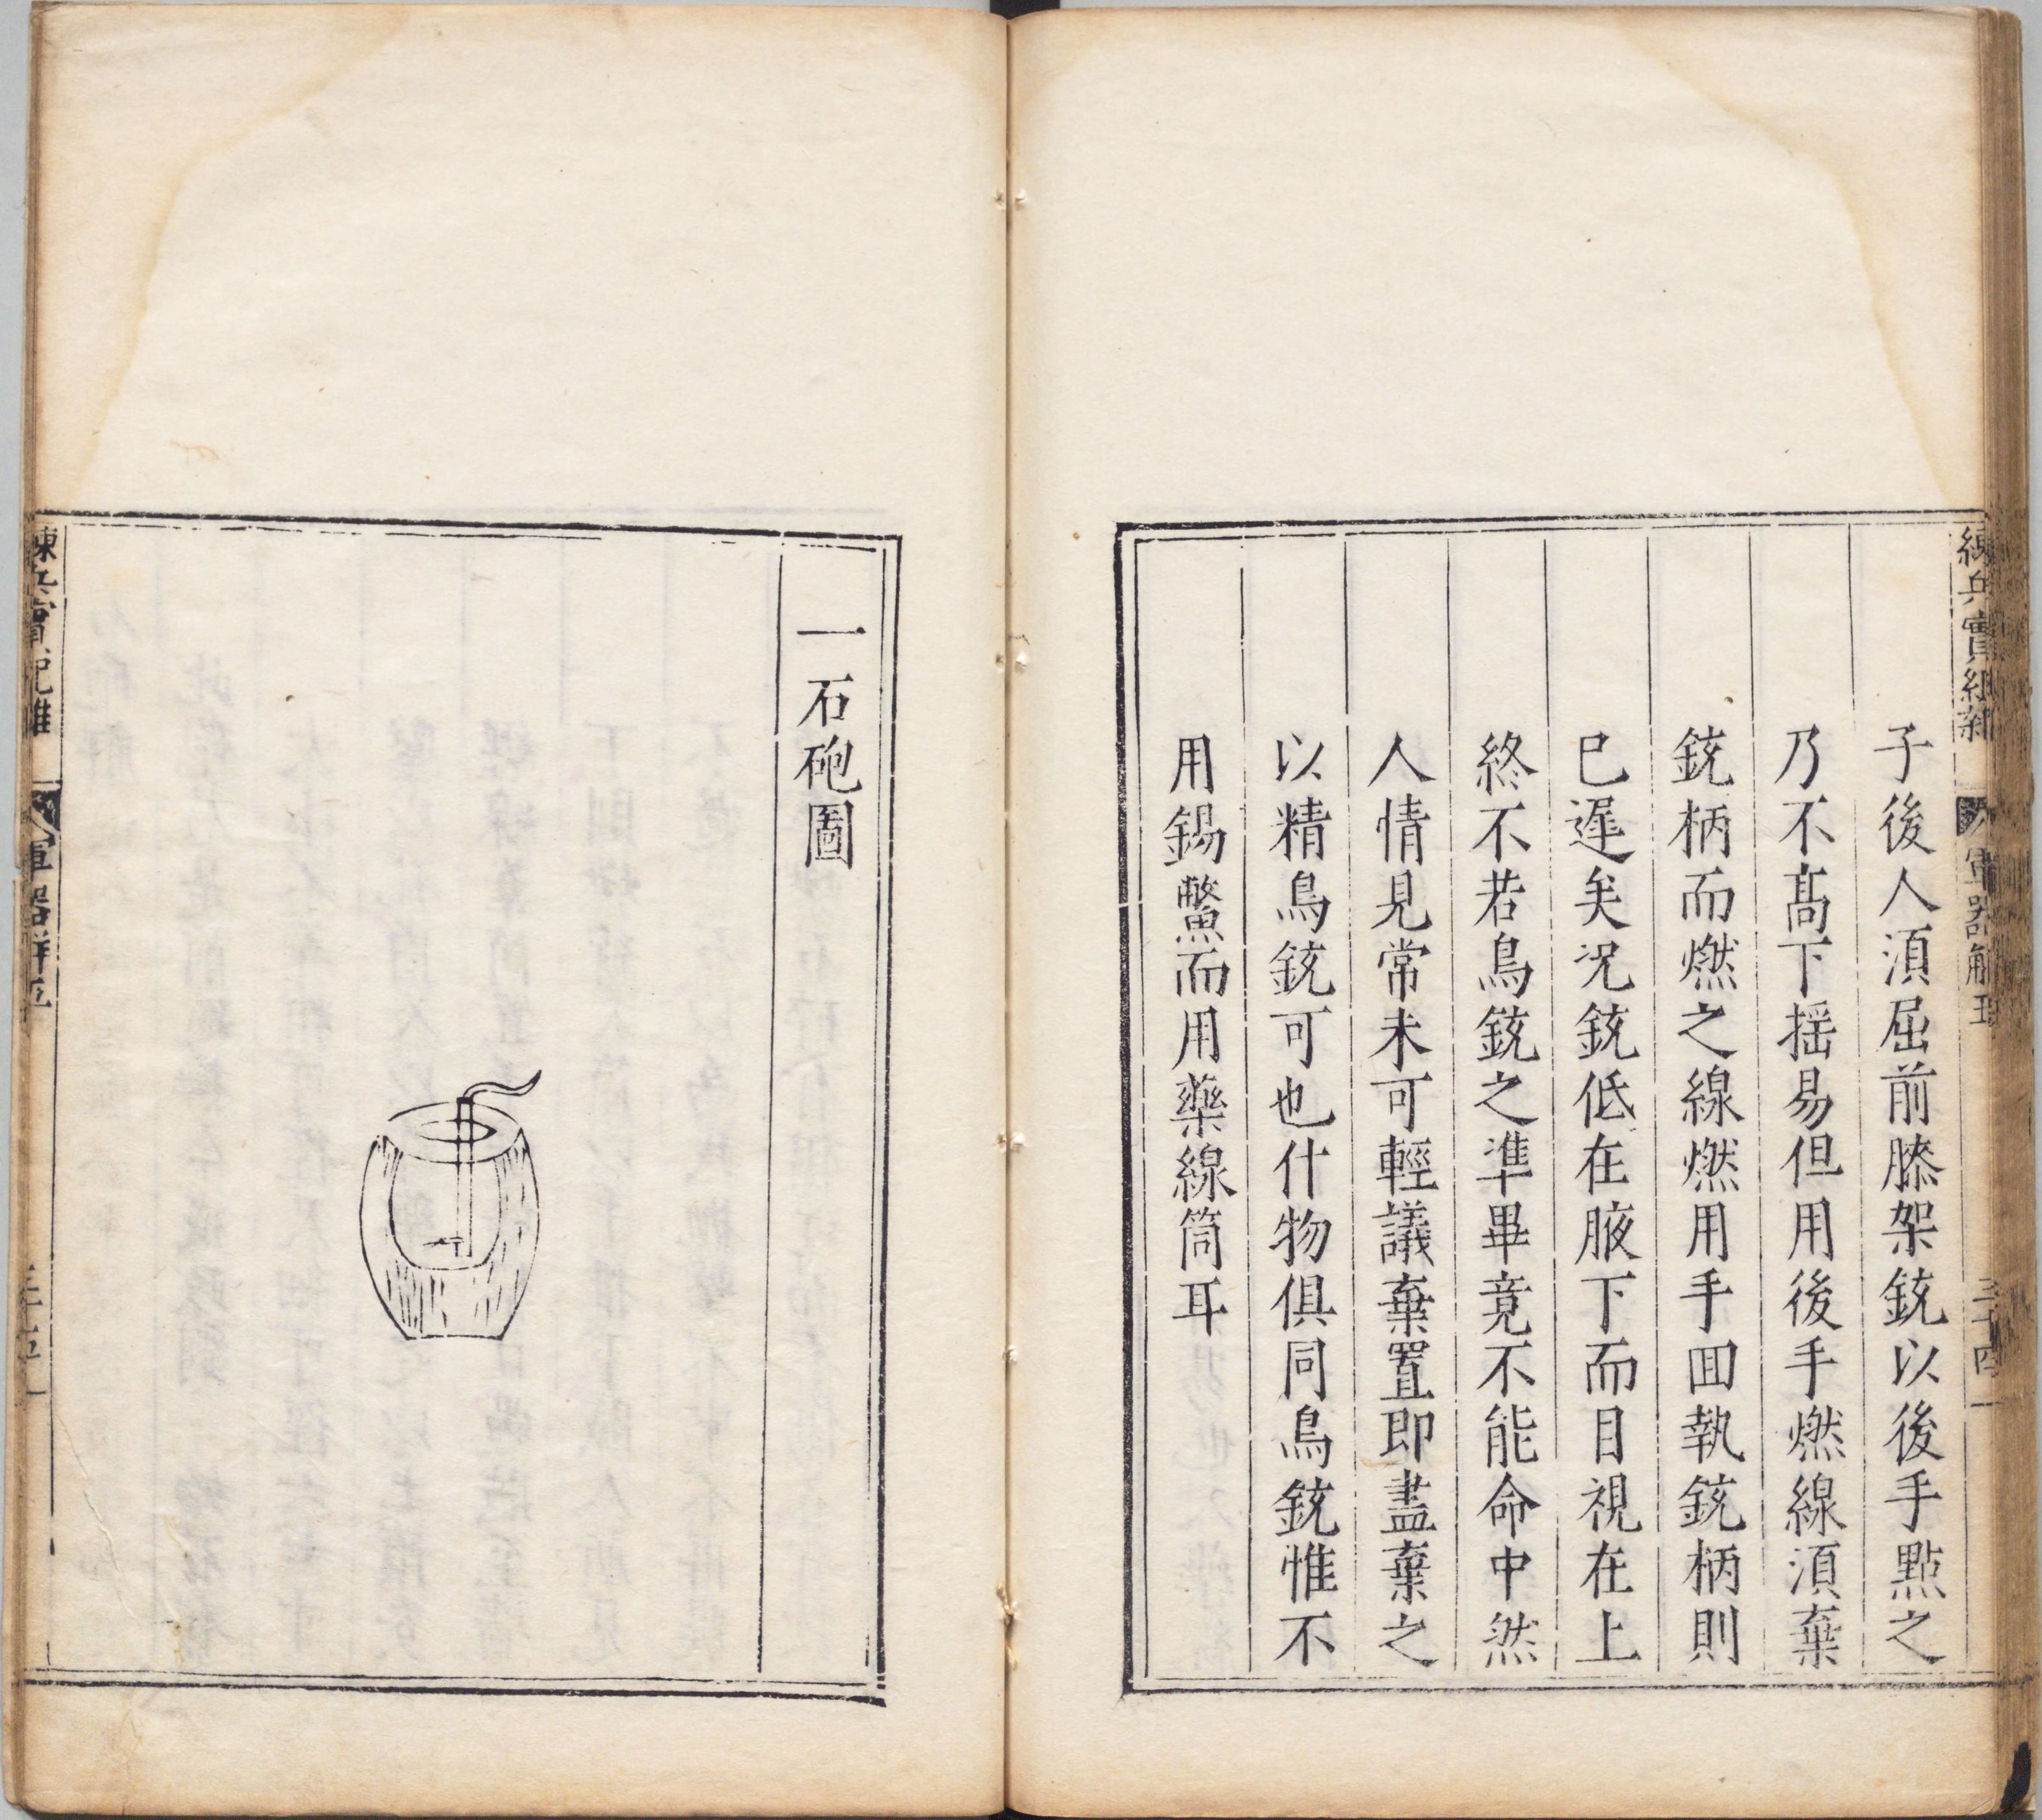 練兵實紀雜 軍器解五 三十四
子後人湏屈前膝架銃以後手㸃之
乃不髙下揺易但用後手燃線湏棄
銃柄而燃之線燃用手囬執銃柄則
已遲矣况銃低在腋下而目視在上
終不若鳥銃之準畢竟不能命中然
人情見常未可輕議棄置即盡棄之
以精鳥銃可也什物俱同鳥銃惟不
用錫鱉而用藥線筒耳
一石砲圖
練兵實紀雜 軍器解五